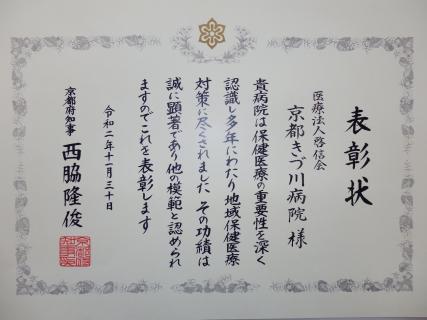 表彰状
医療法人啓信会
京都きづ川病院 様
貴病院は保健医療の重要性を深く
認識し多年にわたり地域保健医療
対策に尽くされました その功績は
誠に顕著であり他の模範と認められ
ますのでこれを表彰します
令和二年十一月三十日
京都府知事 西脇隆俊